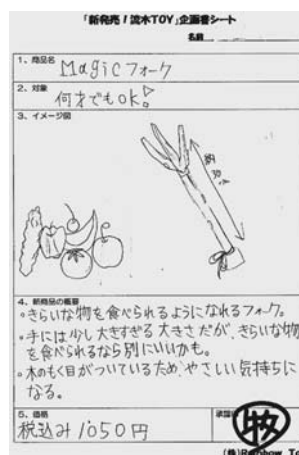 「新発売!流木TOY」企画書シート
名前
1、商品名
Magicフォーク
2、対象
何才でもOK!
3、イメージ図
約30cm
4、新商品の概要
・きらいな物を食べられるようになれるフォーク。
・手には少し大きすぎる大きさだが、きらいな物
を食べられるなら別にいいかも。
・木のもく目がついているため、やさしい気持ちに
なる。
5、価格
税込み1050円
承認
(株)Rainbow To